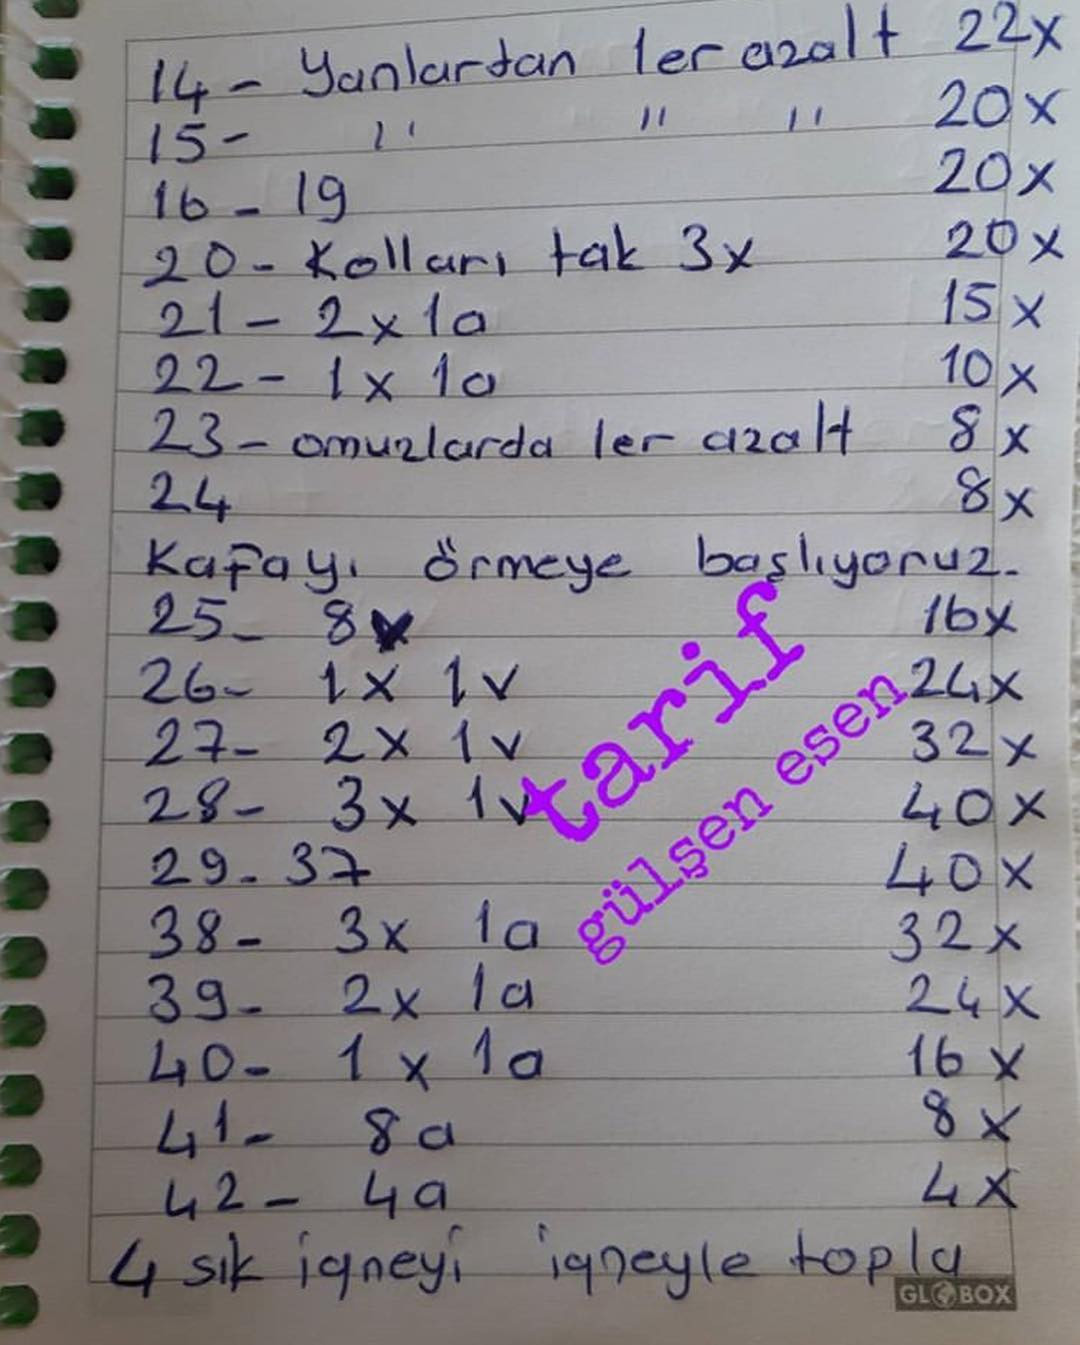 14 - Yanlardan 1er azalt 22x
15 - " " " 20x
16 - 19 20x
20 - Kolları tak 3x 20x
21 - 2x 1a 15x
22 - 1x 1a 10x
23 - omuzlarda 1er azalt 8x
24 8x
Kafayı örmeye başlıyoruz.
25 - 8v 16x
26 - 1x 1v 24x
27 - 2x 1v 32x
28 - 3x 1v 40x
29 - 37 40x
38 - 3x 1a 32x
39 - 2x 1a 24x
40 - 1x 1a 16x
41 - 8a 8x
42 - 4a 4x
4 sık iğneyi iğneyle topla
tarif
gülşen esen
GLOBOX